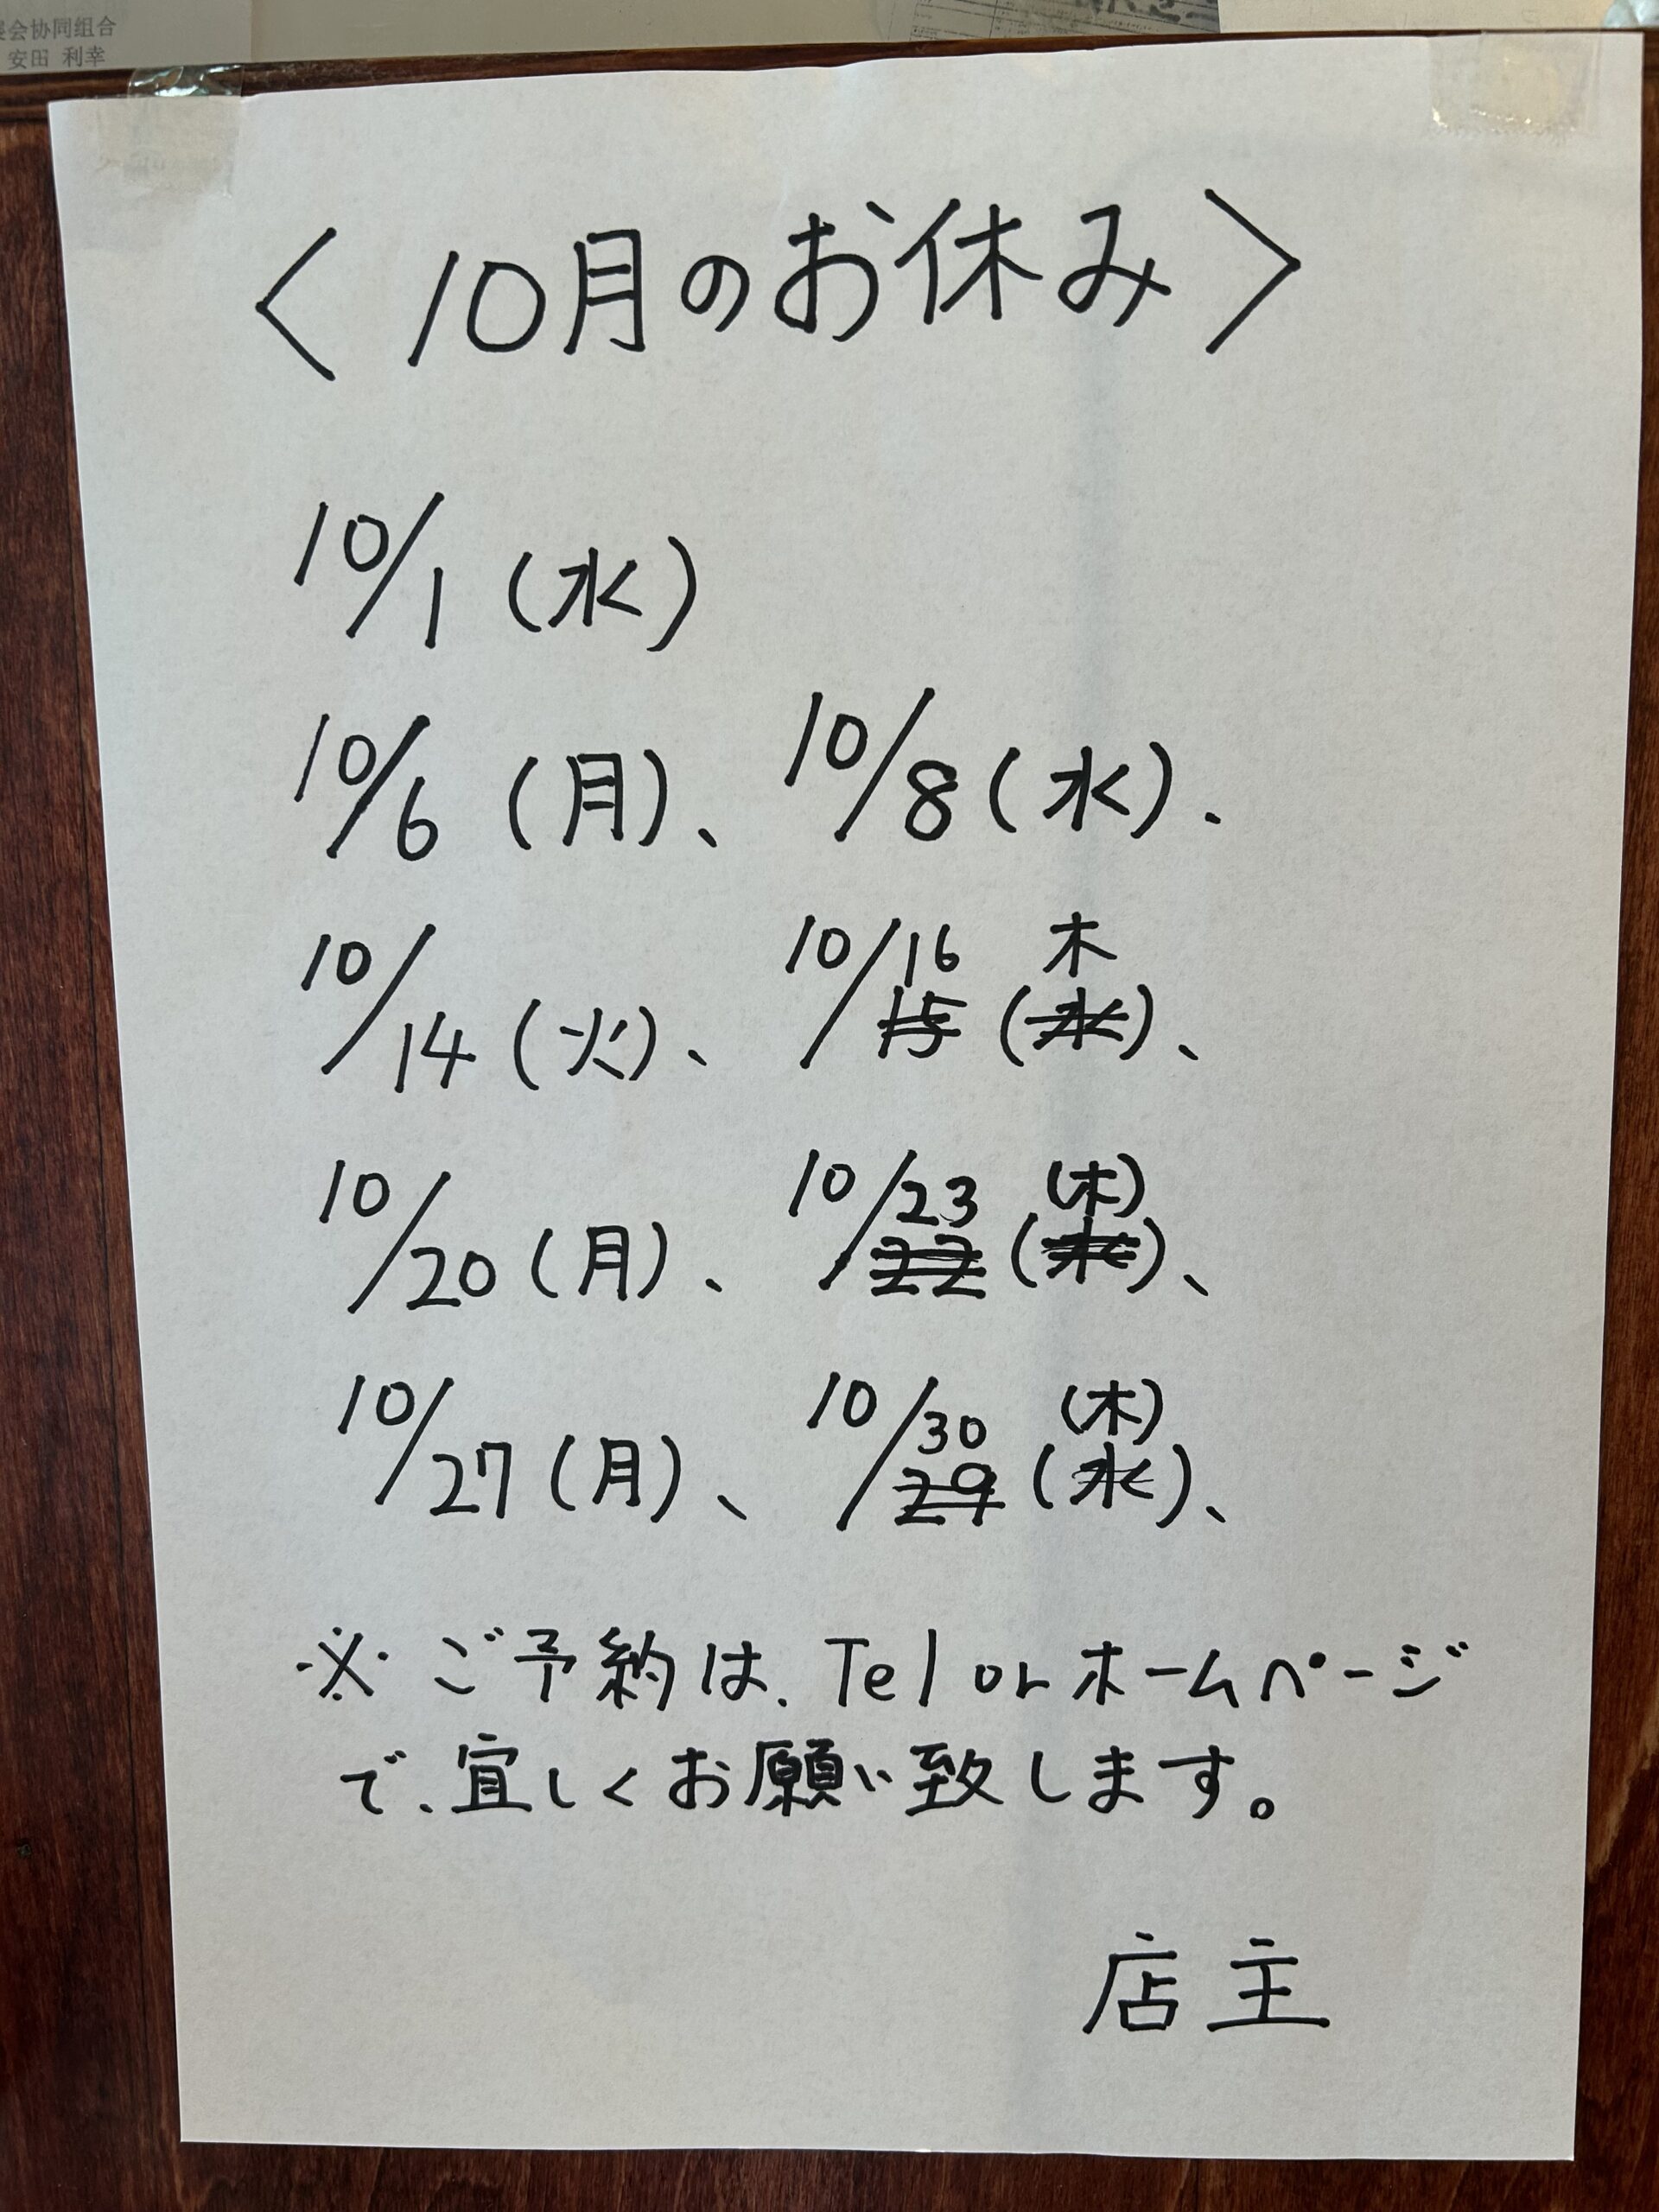 展会协同组合
安田 利幸
〈10月のお休み〉
10/1 (水)
10/6 (月)、10/8 (水).
16 木
10/14 (火)、10/15 (水)、
23 (木)
10/20 (月)、10/22 (水)、
30 (木)
10/27 (月)、10/29 (水)、
※ ご予約は、Tel or ホームページ
で、宜しくお願い致します。
店主